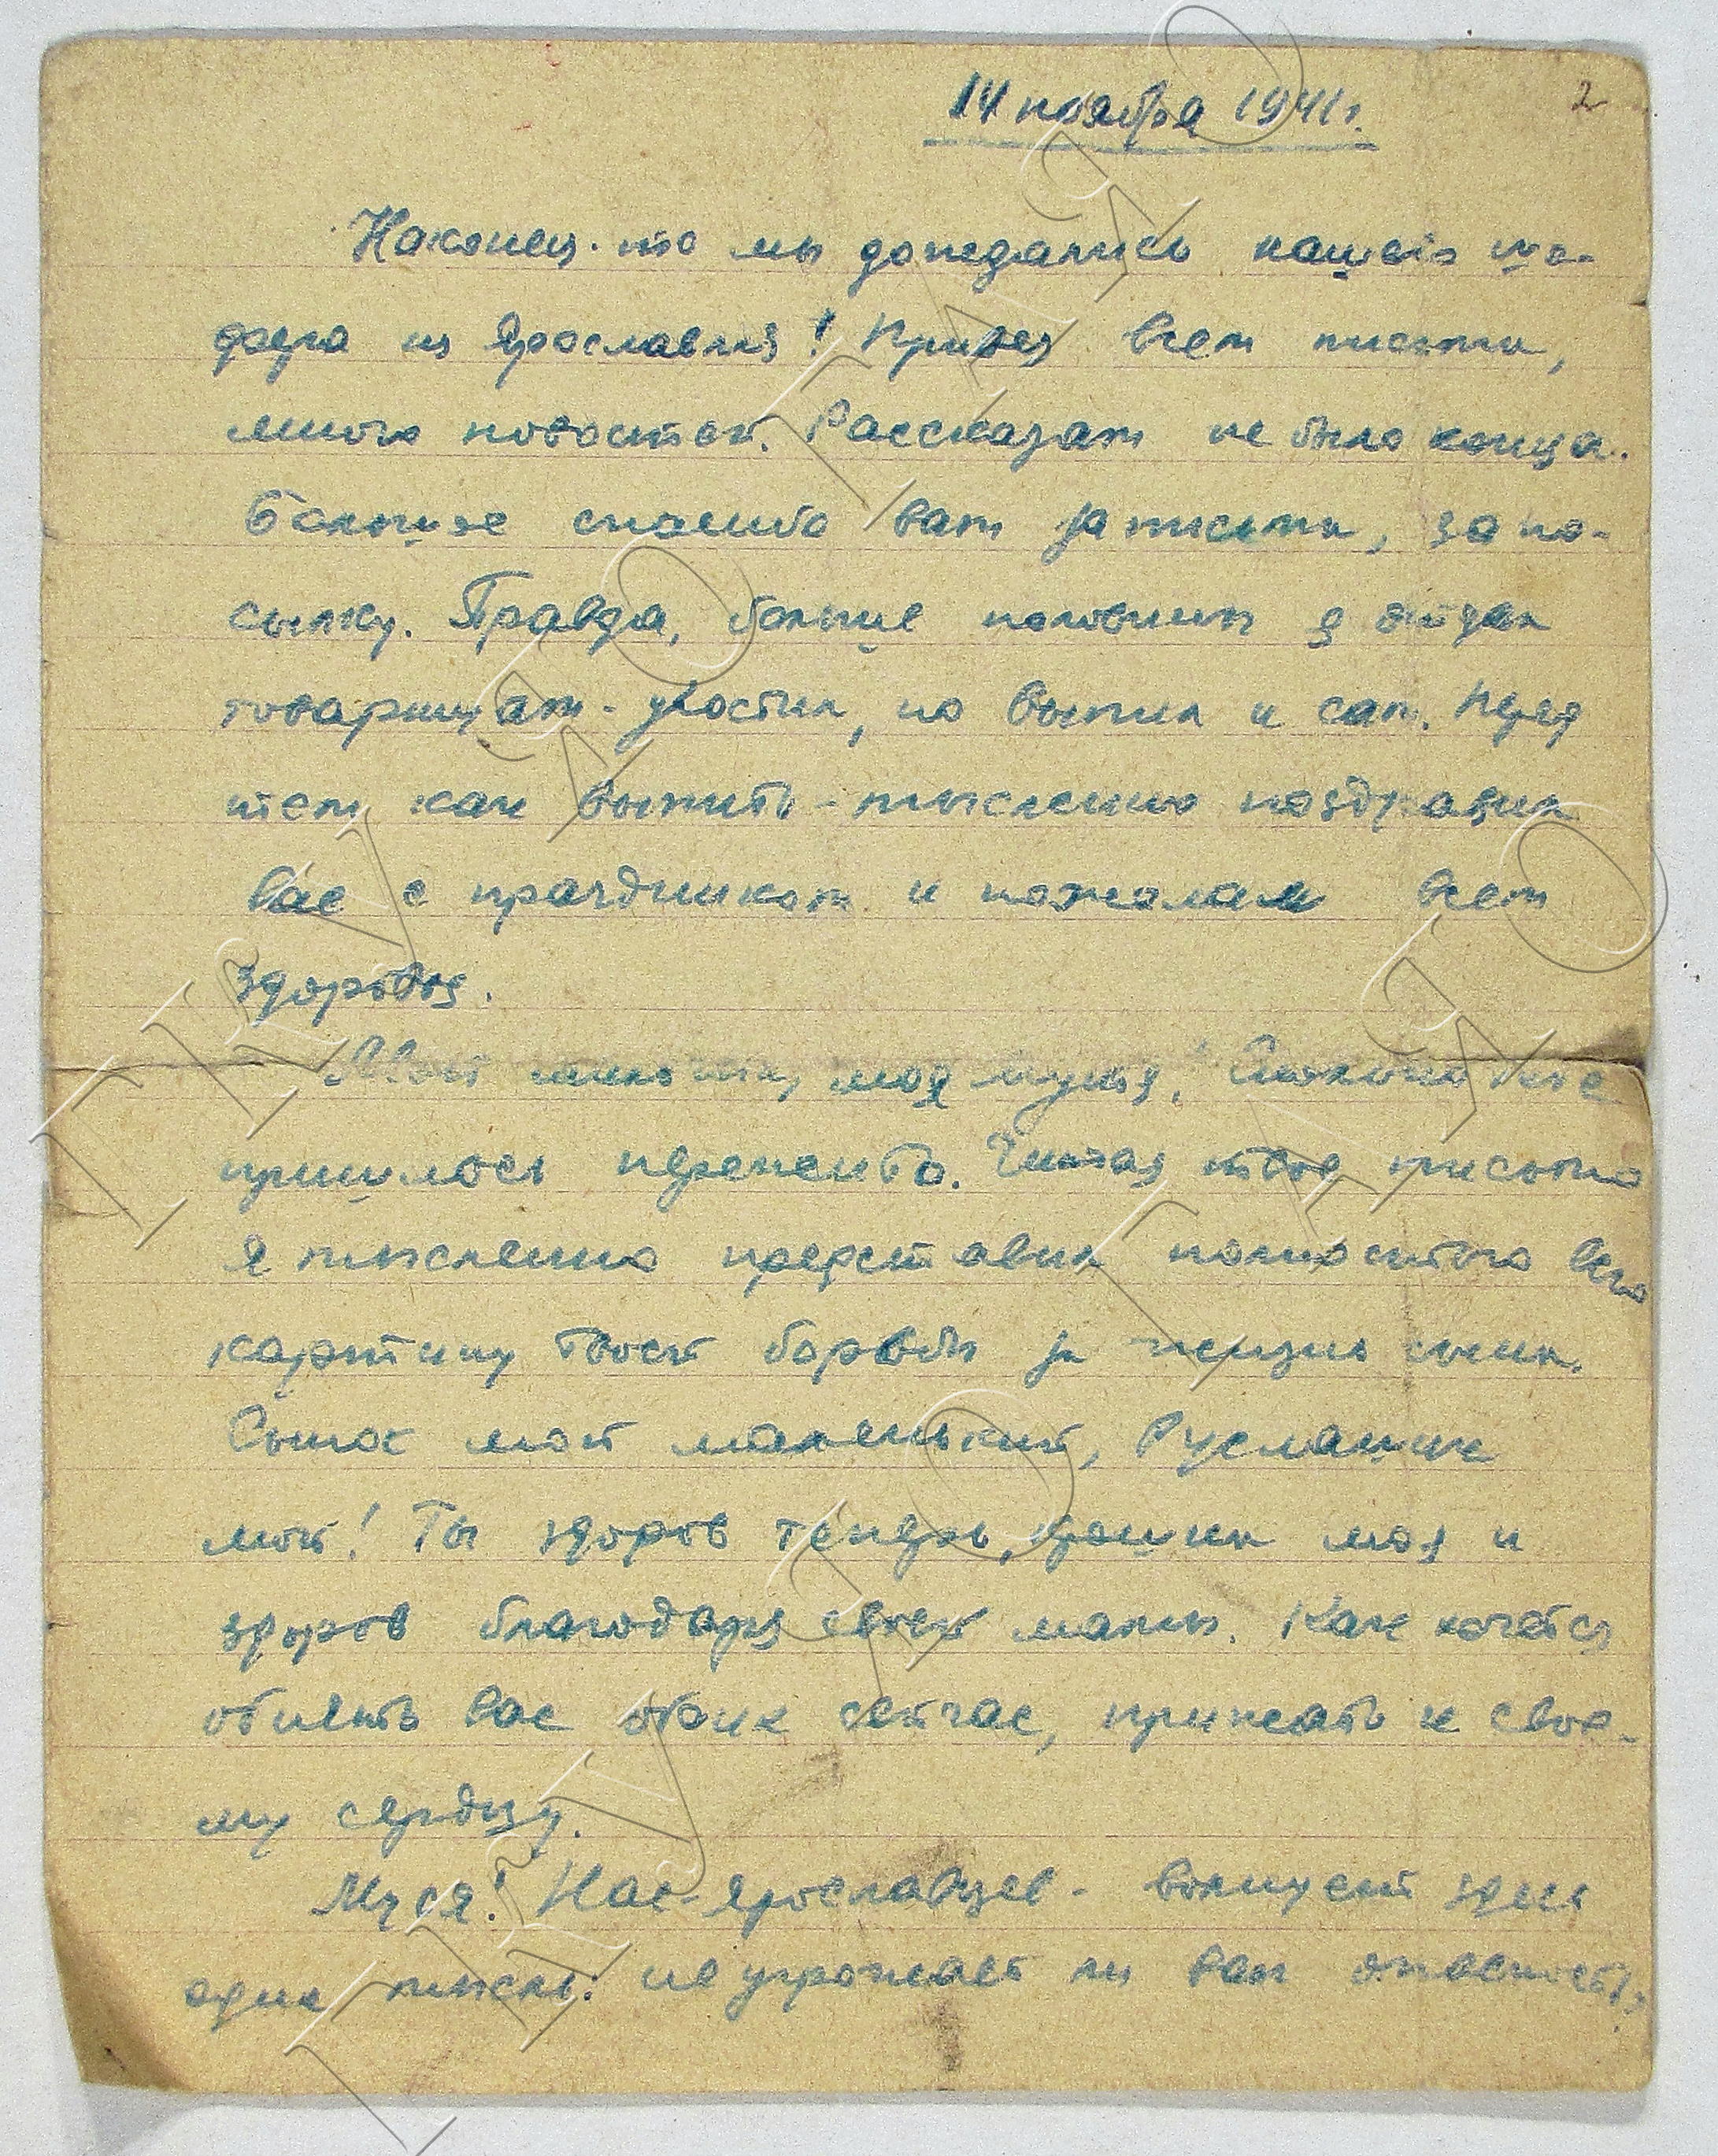 14 ноября 1941 г.
2
Наконец-то мы дождались нашего шо-
фера из Ярославля! Привез всем письма,
много новостей. Рассказам не было конца.
Большое спасибо вам за письма, за по-
сылку. Правда, больше половины я отдал
товарищам - угостил, но выпил и сам. Перед
тем как выпить - мысленно поздравил
вас с праздником и пожелал всем
здоровья.
моя Муся!
пришлось пережить. Читая твое письмо
я мысленно представил полностью всю
картину твоей борьбы за жизнь сына.
Сынок мой маленький, Русланчик
мой! Ты здоров теперь, крошка моя и
здоров благодаря своей мамы. Как хочется
обнять вас обоих сейчас, прижать к свое-
му сердцу.
Муся! Нас - Ярославцев - волнует здесь
одна мысль: не угрожает ли вам опасность,
ГКУ ЯО ГАЯО
ГКУ ЯО ГАЯО